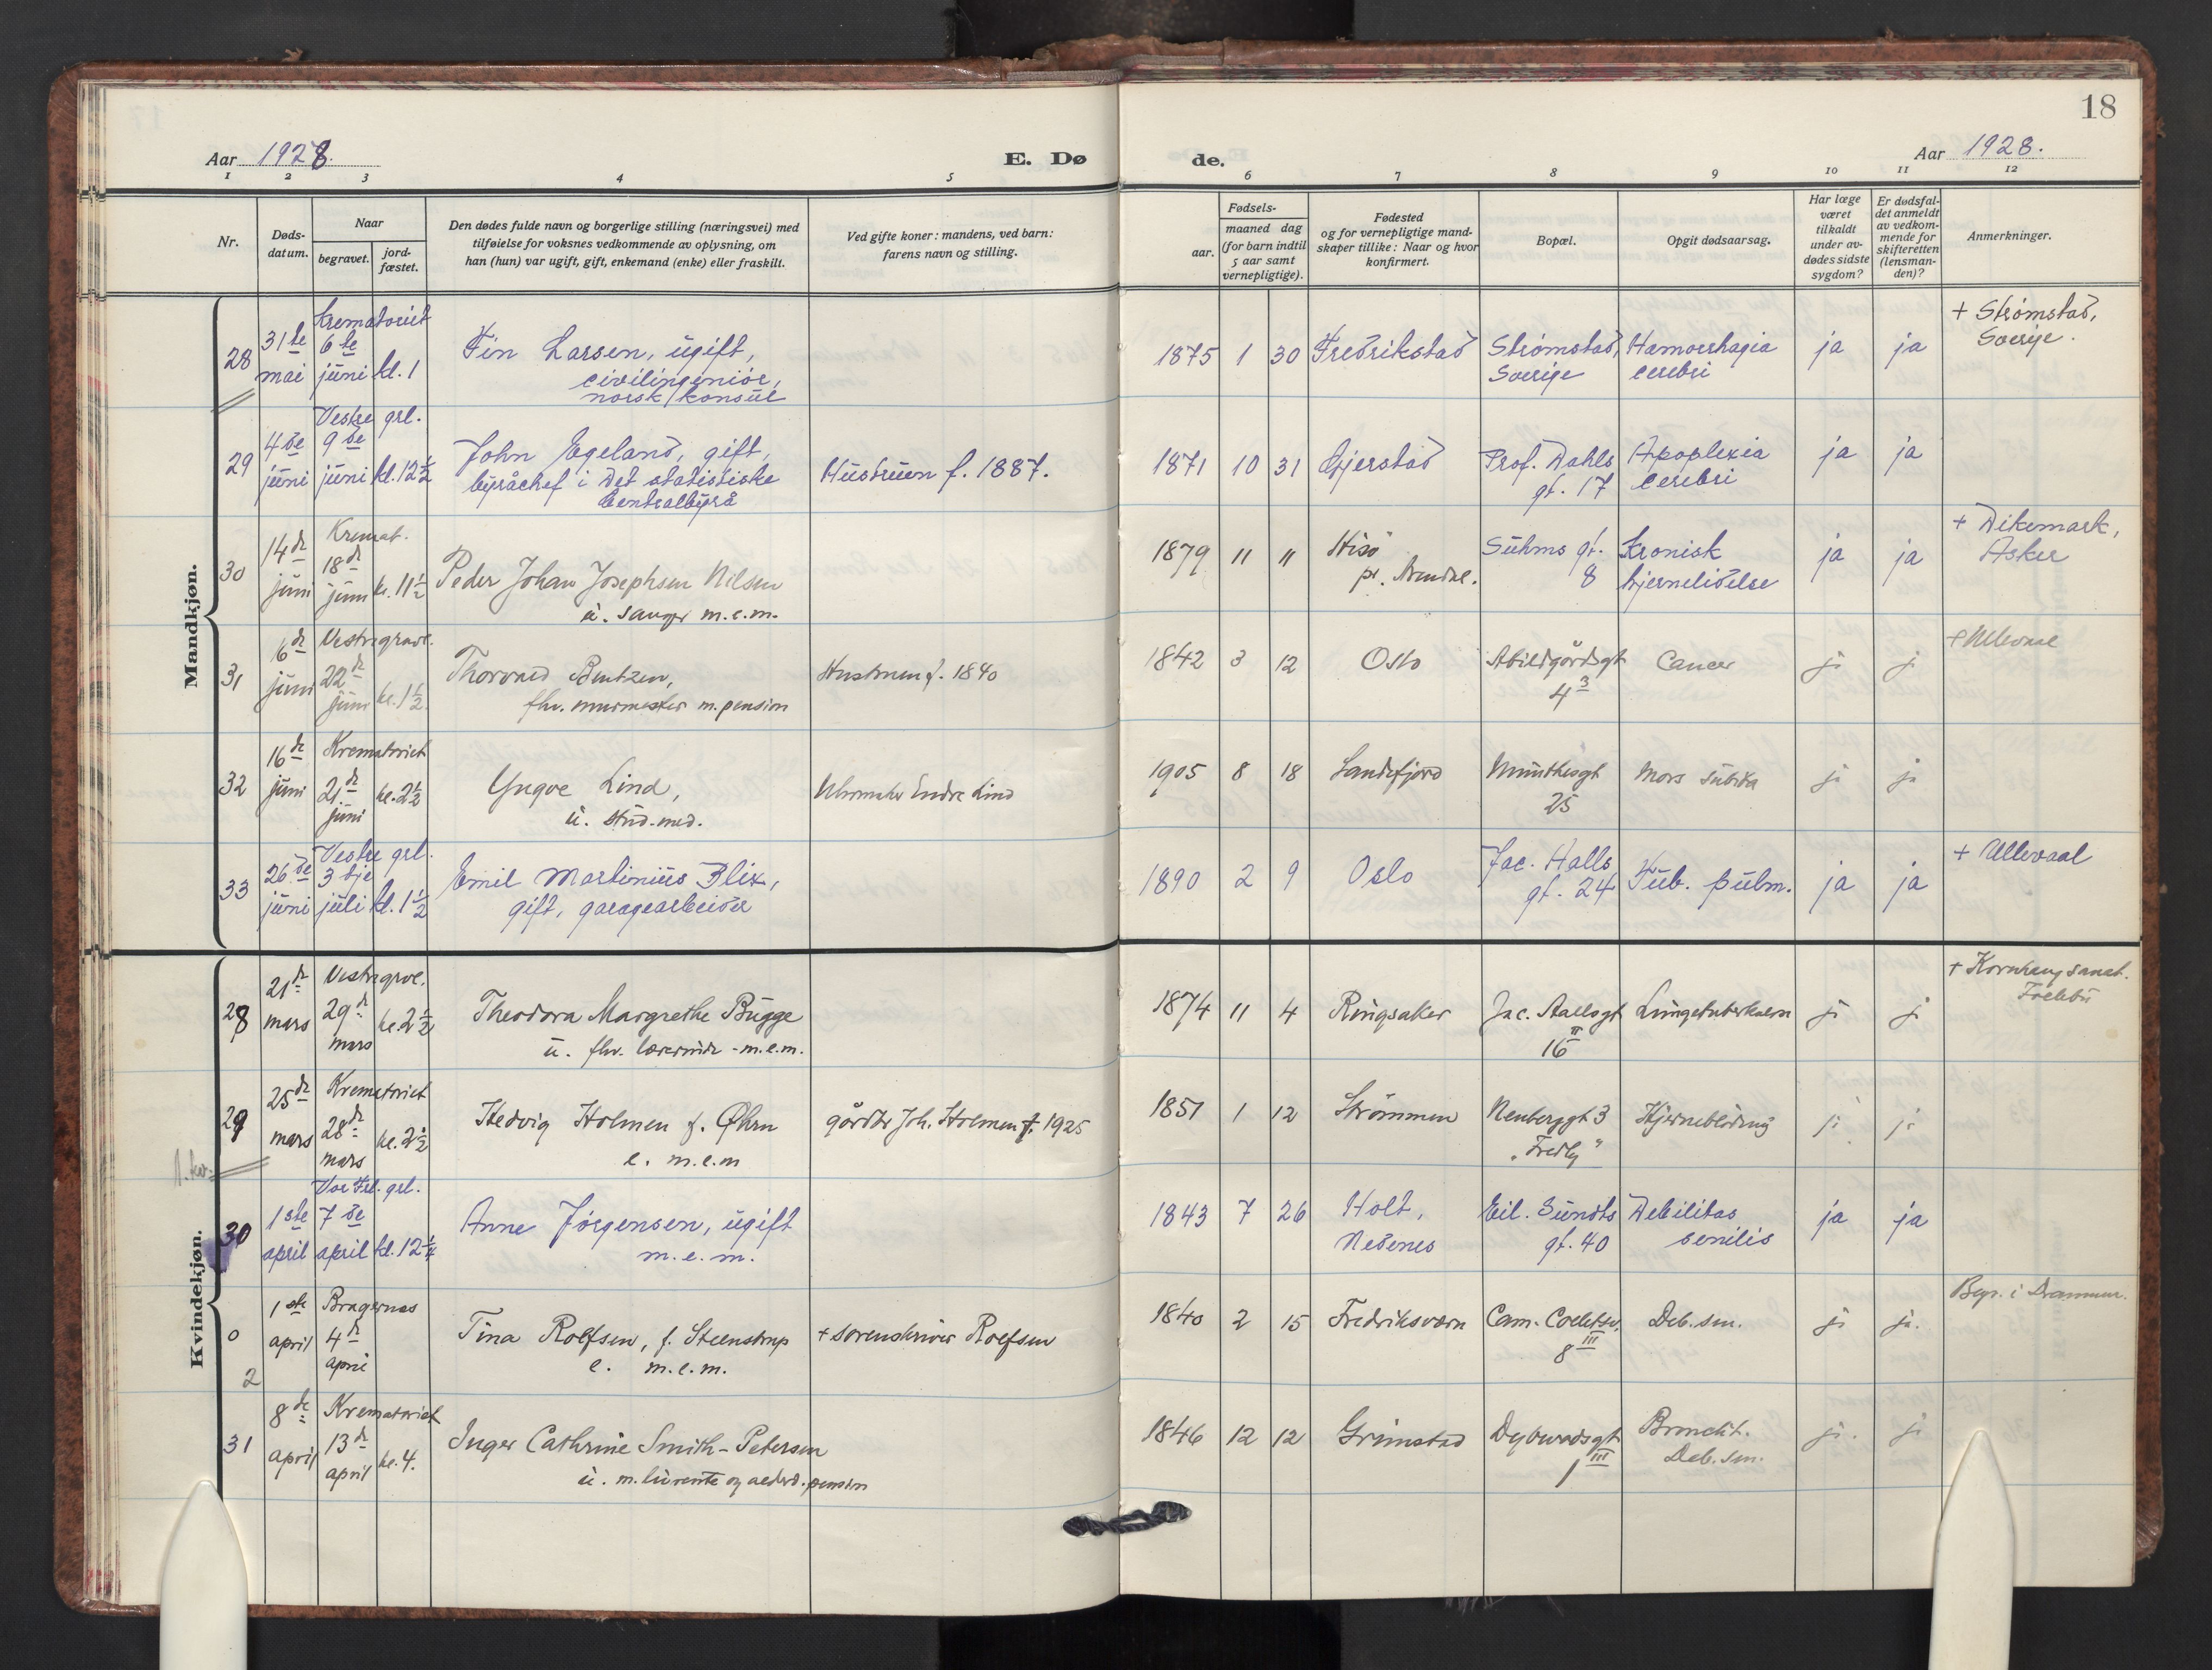 18
Aar 1928.
E. Dø
de.
Aar 1928.
1 2 3 4 5 6 7 8 9 10 11 12
Nr.
Døds-
datum.
Naar
begravet.
jord-
fæstet.
Den dødes fulde navn og borgerlige stilling (næringsvei) med
tilføielse for voksnes vedkommende av oplysning, om
han (hun) var ugift, gift, enkemand (enke) eller fraskilt.
Ved gifte koner: mandens, ved barn:
farens navn og stilling.
Fødsels-
aar.
maaned dag
(for barn indtil
5 aar samt
vernepligtige).
Fødested
og for vernepligtige mand-
skaper tillike: Naar og hvor
konfirmert.
Bopæl.
Opgit dødsaarsag.
Har læge
været
tilkaldt
under av-
dødes sidste
sygdom?
Er dødsfal-
det anmeldt
av vedkom-
mende for
skifteretten
(lensman-
den)?
Anmerkninger.
Mandkjøn.
28
31te
mai
Krematoriet
6te
juni
kl. 1
Fin Larsen, ugift,
civilingeniør,
norsk konsul
1875 1 30
Fredrikstad
Strømstad,
Sverige
Hamorrhagia
cerebri
ja ja
+ Strømstad,
Sverige.
29
4de
juni
Vestre grl.
9de
juni
kl. 12½
John Egeland, gift,
byråchef i Det statistiske
Centralbyrå
Hustruen f. 1887.
1871 10 31
Gjerstad
Prof. Dahls
gt. 17
Apoplexia
cerebri
ja ja
30
14d
juni
Kremat.
18d
juni
kl. 11½
Peder Johan Josephsen Nilsen
u. sanger m.e.m.
1879 11 11
Hisö
pr. Arendal.
Suhms gt.
8
Kronisk
hjernelidelse
ja ja
+ Dikemark,
Asker
31
6d
juni
Vestregravl.
22d
juni
kl. 1½
Thorvald Bentzen,
fhv. murmester m. pension
Hustruen f. 1840
1842 3 12
Oslo
Abildgårdsgt
4 3
Cancer
ja ja
+ Ullevaal
32
16d
juni
Krematoriet
21d
juni
kl. 2½
Yngve Lind,
u. stud. med.
Uhrmaker Endre Lind
1905 8 18
Sandefjord
Munthesgt
25
Mors subita
ja ja
33
26de
juni
Vestre grl.
3dje
juli
kl. 1½
Emil Martinius Blix,
gift, garagearbeider
1890 2 9
Oslo
Jac. Halls
gt. 24
Tub. pulm.
ja ja
+ Ullevaal
Kvindekjøn.
28
21d
mars
Vestregrvl.
29d
mars
kl. 2½
Theodora Margrethe Bugge
u. fhv. lærerinde - m.e.m.
1874 11 4
Ringsaker
Jac. Aallsgt
16 II
Lungetuberkulose
ja ja
+ Kornhaug sanat.
29
25d
mars
Krematoriet
28d
mars
kl. 2½
Hedvig Holmen f. Øhrn
e. m.e.m
gårdbr Joh. Holmen f. 1925
1851 1 12
Strømmen
Neuberggt 3
"Fredly"
Hjerneblødning
ja ja
1. kv.
30
1ste
april
Vor Frl. grl.
7de
april
kl. 12¼
Anne Jørgensen, ugift
m.e.m.
1843 7 26
Holt,
Nedenes
Eil. Sundts
gt. 40
Debilitas
senilis
ja ja
0
2
1ste
april
Bragernes
4d
april
Tina Rolfsen, f. Steenstrup
e. m.e.m.
+ sorenskriver Rolfsen
1840 2 15
Fredriksværn
Cam. Collettsv.
8 III
Deb. sen.
ja ja.
Begr. i Drammen.
31
8de
april
Krematoriet
13d
april
kl. 4.
Inger Cathrine Smith-Petersen
u. m. livrente og alderd. pension
1846 12 12
Grimstad
Dybwadsgt
1 III
Bronchit.
Deb. sen.
ja. ja